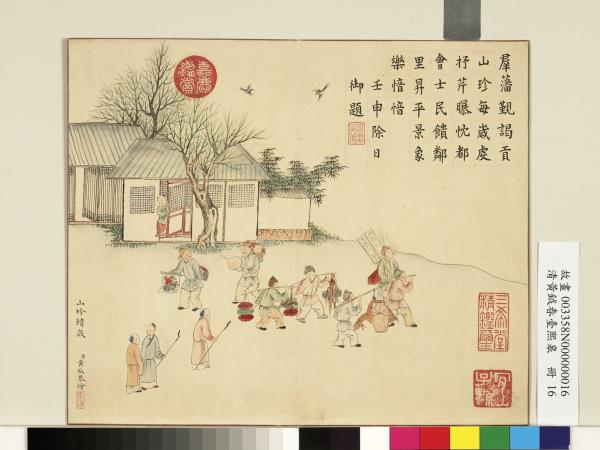 羣藩覲謁貢
山珍每歲處
抒芹曝忱都
會士民饋鄰
里昇平景象
樂愔愔
壬申除日
御題
嘉慶鑑賞
山珍饋歲
臣黃鉞恭繪
三希堂精鑑璽
宜子孫
故畫 003358N000000016
清黃鉞春臺熙皞 冊 16